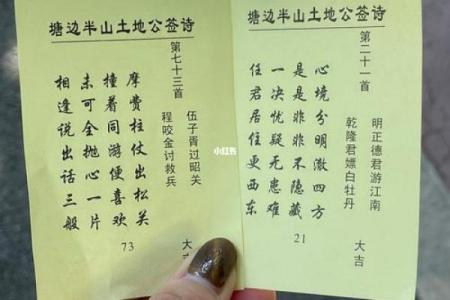 塘边半山土地公签诗
第七十三首
伍子胥过昭关
程咬金讨救兵
摩费柱仗出松关
撞着同游便喜欢
未可全抛心一片
相逢说出话三般
大吉
73
塘边半山土地公签诗
第二十一首
明正德君游江南
乾隆君嫖白牡丹
心境分明澈四方
是是非非不隐藏
一决忧疑无患难
任君居住更西东
大吉
21
小红书